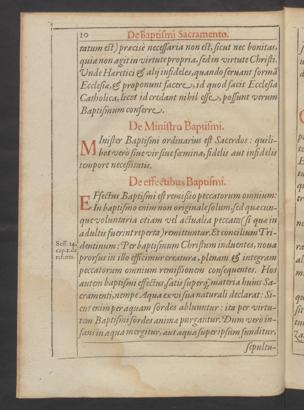 10 De Baptismi Sacramento.
tatum est) precisè necessaria non est, sicut nec bonitas,
quia non agit in virtute propria, sed in virtute Christi.
Vnde Heretici & alij infideles, quando seruant formā
Ecclesiæ, & proponunt facere, id quod facit Ecclesia
Catholica, licet id credant nihil esse, possunt verum
Baptismum conferre.
De Ministro Baptismi.
MInister Baptismi ordinarius est Sacerdos: quili-
bet verò siue vir siue fœmina, fidelis aut infidelis
tempore necessitatis.
De effectibus Baptismi.
EFfectus Baptismi est remissio peccatorum omnium:
In baptismo enim non originale solum, sed quæcun-
que voluntaria etiam vel actualia peccata (si qua in
adultis fuerint reperta) remittuntur. Et concilium Tri-
Sess. 14. dentinum: Per baptismum Christum induentes, noua
cap. 2. de prorsus in illo efficimur creatura, plenam & integram
peccatorum omnium remissionem consequentes. Hos
autem baptismi effectus satis superq́; materia huius Sa-
cramenti, nempe Aqua ex vi sua naturali declarat: Si-
cut enim per aquam sordes abluuntur: ita per virtu-
tem Baptismi sordes anima purgantur. Dum verò in-
fans in aqua mergitur, aut aqua super ipsum funditur,
sepultu-